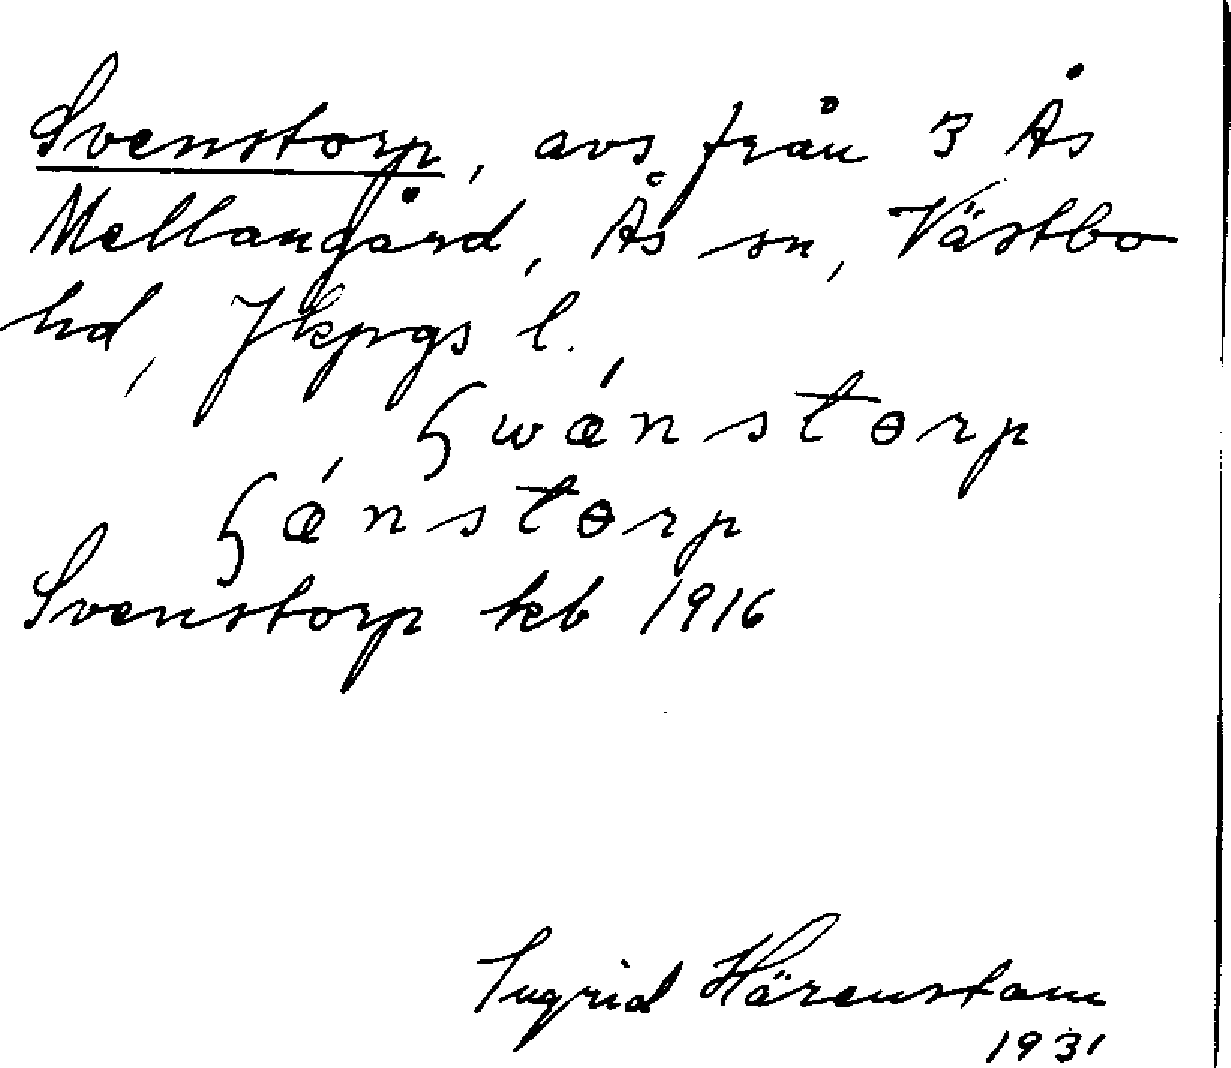 Svenstorp, avs från 3 Ås
Mellangård, Ås sn, Västbo
hd, Jkpgs l.
ɧwǽnstɵrp
ɧǽnstɵrp
Svenstorp kb 1916
Ingrid Härenstam
1931